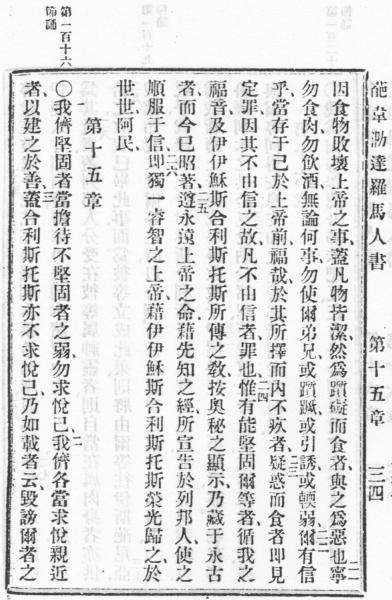 葩韋泐達羅馬人書 第十五章 三四
因食物敗壞上帝之事、蓋凡物皆潔、然爲躓礙而食者、與之爲惡也、二一寧
勿食肉勿飲酒、無論何事勿使爾弟兄或躓蹶或引誘或輭弱、二二爾有信
乎、當存于己於上帝前、福哉於其所擇而內不疚者、二三疑惑而食者卽見
定罪、因其不由信之故、凡不由信者罪也、二四惟有能堅固爾等者、循我之
福音、及伊伊穌斯合利斯托斯所傳之敎、按奧秘之顯示、乃藏于永古
者、二五而今已昭著、遵永遠上帝之命、藉先知之經、所宣告於列邦人使之
順服于信、二六卽獨一睿智之上帝、藉伊伊穌斯合利斯托斯、榮光歸之於
世世、阿民、
第十五章
一○我儕堅固者當擔待不堅固者之弱、勿求悅己、二我儕各當求悅親近
者、以建之於善、三蓋合利斯托斯亦不求悅己、乃如載者云、毀謗爾者之
第一百十六
節誦